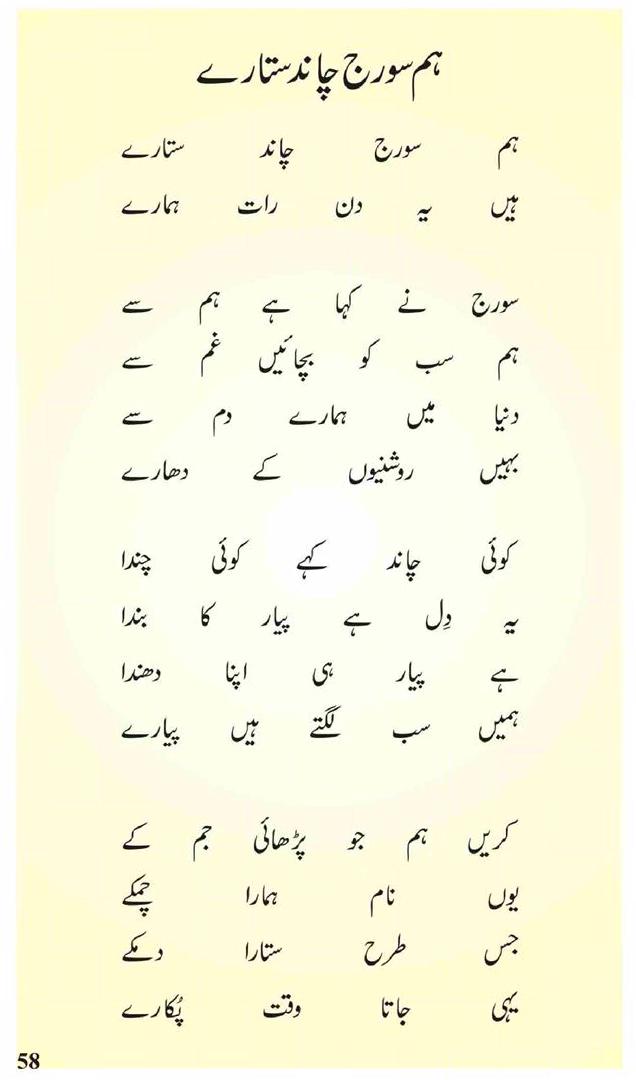 ہم سورج چاند ستارے
ہم سورج چاند ستارے
ہیں یہ دن رات ہمارے
سورج نے کہا ہے ہم سے
ہم سب کو بچائیں غم سے
دنیا میں ہمارے دم سے
بہیں روشنیوں کے دھارے
کوئی چاند کہے کوئی چندا
یہ دِل ہے پیار کا بندا
ہے پیار ہی اپنا دھندا
ہمیں سب لگتے ہیں پیارے
کریں ہم جو پڑھائی جم کے
یوں نام ہمارا چمکے
جس طرح ستارا دمکے
یہی جاتا وقت پُکارے
58